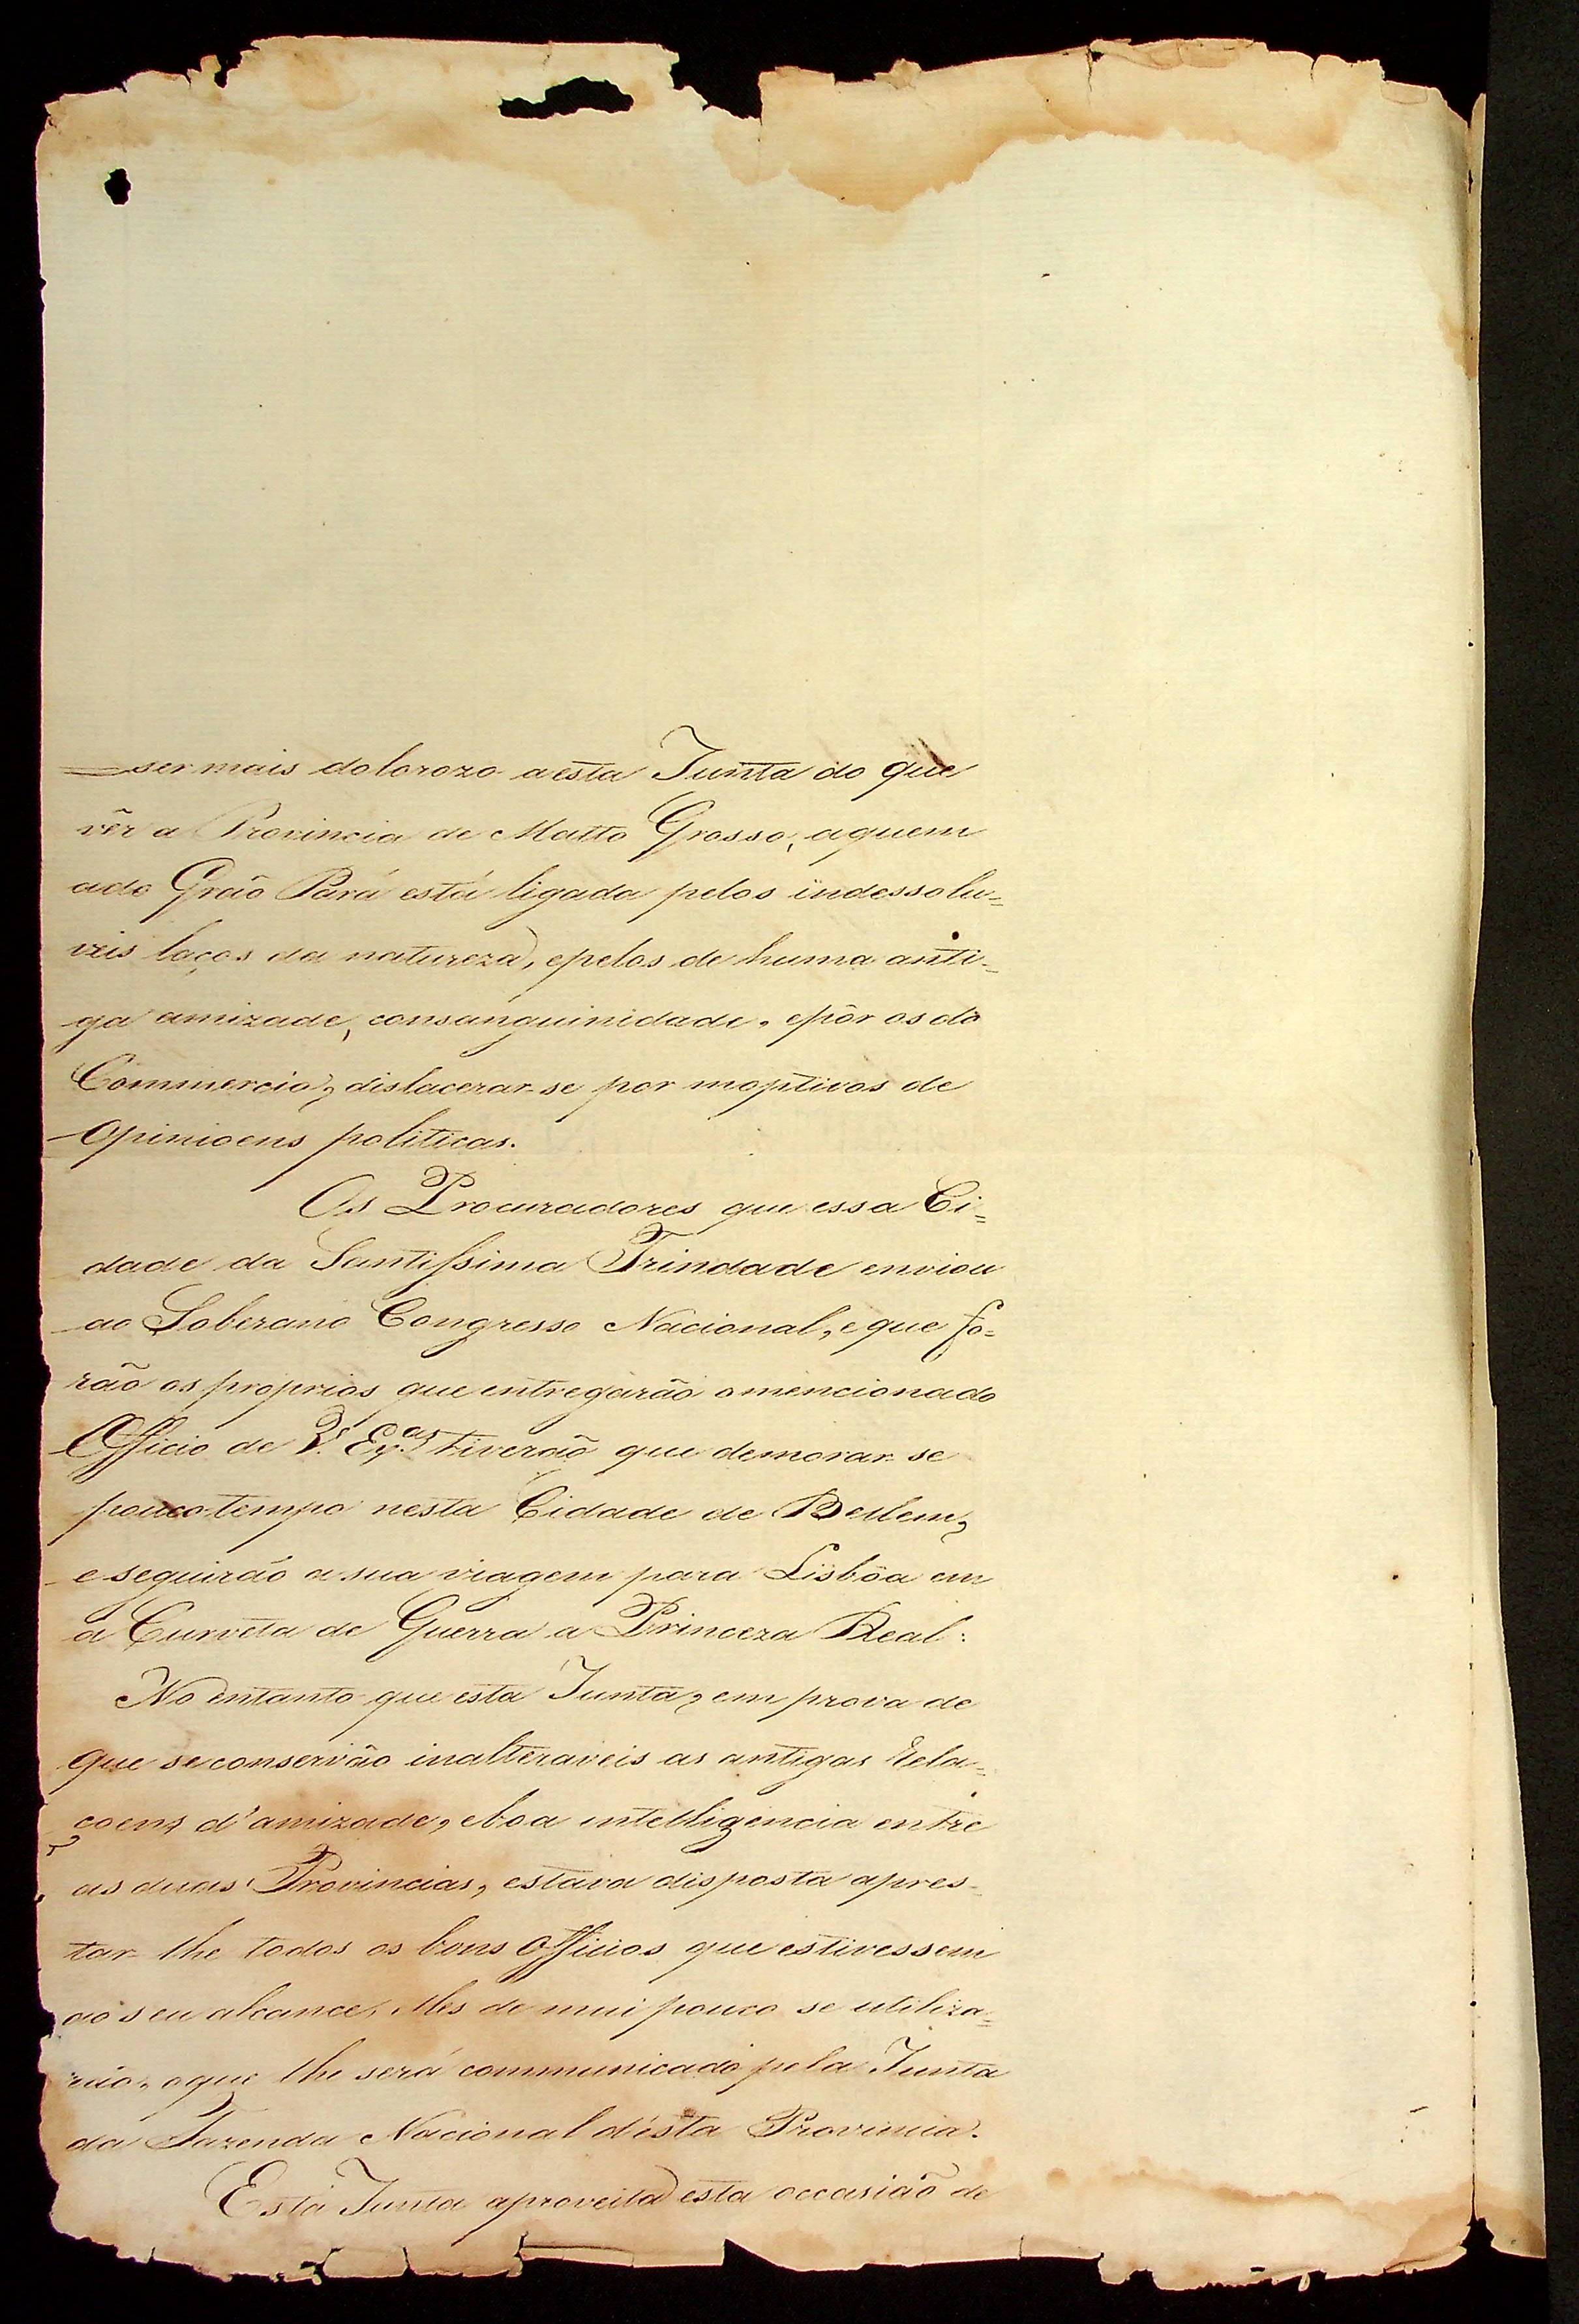 =ser mais dolorozo a esta Junta do que
vêr a Provincia de Matto Grosso, aquem
ado Grão Pará está ligada pelos indessolu=
veis laços da natureza, epelos de huma anti=
ga amizade, consanguinidade, epôr os do
Commercio, dislacerar-se por moptivos de
Opinioens politicas.
Os Procuradores que essa Ci=
dade da Santissima Trindade enviou
ao Soberano Congresso Nacional, eque fo=
rão os proprios que entregarão omencionado
Officio de V. Exas. tiverão que demorar-se
poucotempo nesta Cidade de Bellem,
eseguirão a sua viagem para Lisbôa em
a Curveta de Guerra a Princeza Real:
No entanto que esta Junta, em prova de
que se conservão inalteraveis as antigas Rela=
çoens d'amizade, eboa intelligencia entre
as duas Provincias, estava disposta apres-
tar-lhe todos os bons Officios que estivessem
ao seu alcance, Mes de mui pouco se utiliza=
rão, oque lhe será communicado pela Junta
da Fazenda Nacional d'ésta Provincia.
Esta Junta aproveita esta occasião de